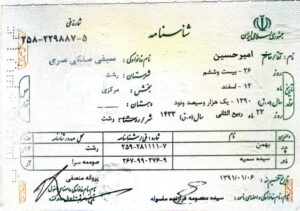 شناسنامه
جمهوری اسلامی ایران
شماره ملی
۲۵۸-۲۲۹۸۸۷-۵
نام: امیرحسین
نام خانوادگی: سیفی ملکی سری
روز ۲۶ - بیست وششم
شهرستان: رشت
ماه ۱۲ - اسفند
بخش: مرکزی
سال (ه.ش) ۱۳۹۰ - یک هزار وسیصد ونود
دهستان:
روز ۲۳ ماه ربیع الثانی سال (ه.ق) ۱۴۳۳
رشت
نام
شماره ملی
محل صدور شناسنامه
پدر بهمن ۲۵۹-۲۸۱۱۱۱-۷ رشت
مادر سیده سمیه ۲۶۷-۹۹۰۲۷۶-۹ صومعه سرا
تاریخ تنظیم: ۱۳۹۱/۰۱/۰۶
پروانه منصفی
سیده معصومه
ماسوله